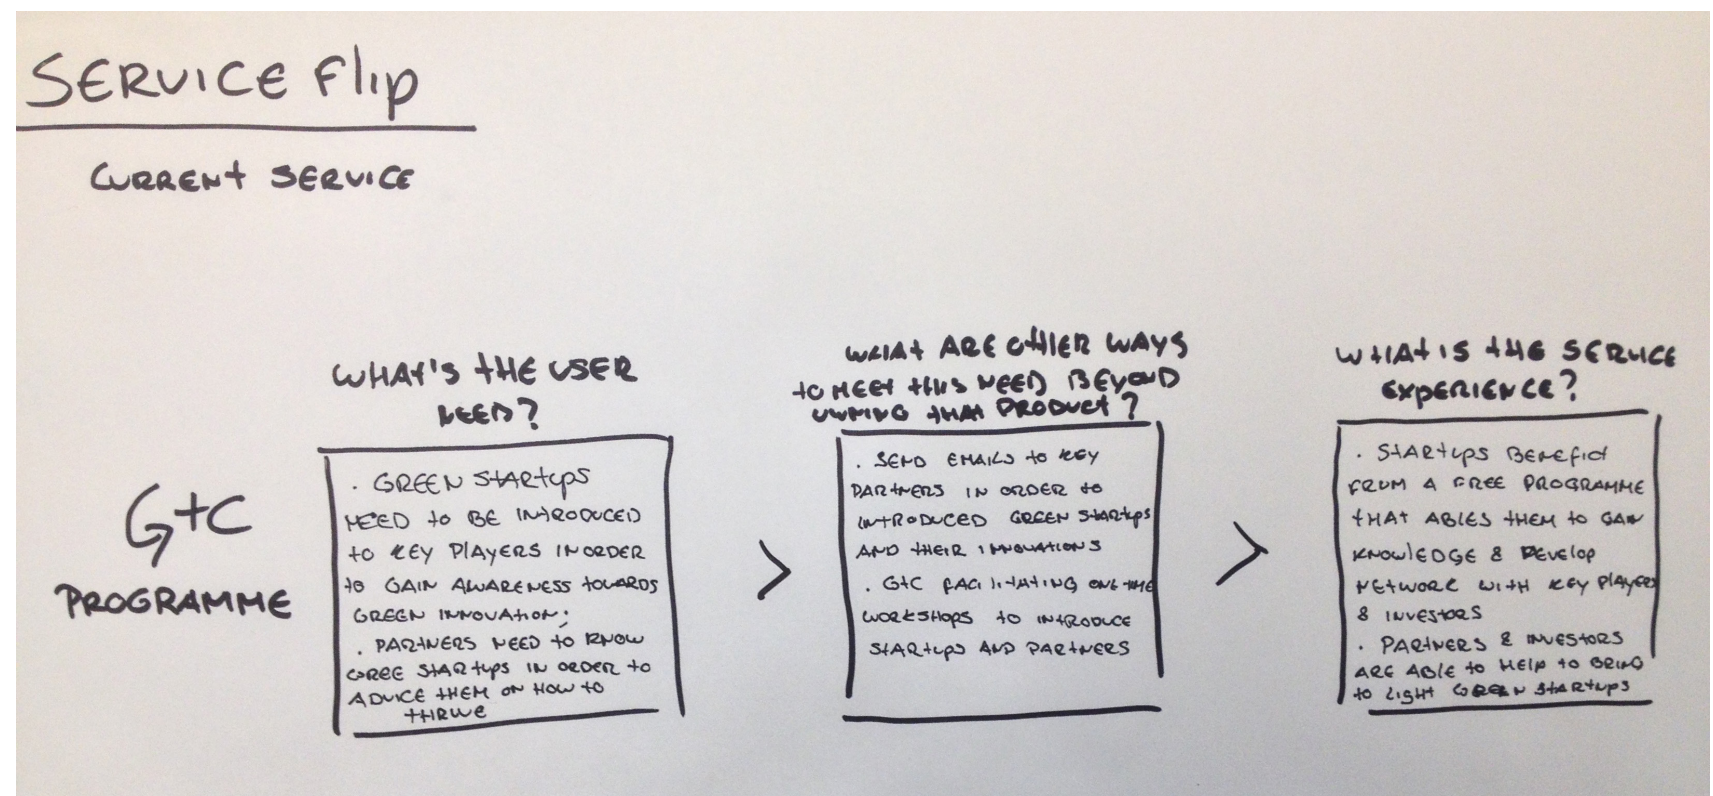 SERVICE Flip
CURRENT SERVICE
GtC
PROGRAMME
WHAT'S THE USER
NEED?
. GREEN STARTUPS
NEED to BE INTRODUCED
to KEY PLAYERS IN ORDER
to GAIN AWARENESS TOWARDS
GREEN INNOVATION;
. PARTNERS NEED to KNOW
GREE STARTUPS IN ORDER to
ADVICE THEM ON HOW to
THRIVE
>
WHAT ARE OTHER WAYS
to MEET THIS NEED BEYOND
OWNING THAT PRODUCT?
. SEND EMAILS to KEY
PARTNERS IN ORDER to
INTRODUCED GREEN STARTUPS
AND THEIR INNOVATIONS
. GtC FACILITATING ONE-TIME
WORKSHOPS to INTRODUCE
STARTUPS AND PARTNERS
>
WHAT IS THE SERVICE
EXPERIENCE?
. STARTUPS BENEFICT
FROM A FREE PROGRAMME
THAT ABLES THEM to GAIN
KNOWLEDGE & DEVELOP
NETWORK WITH KEY PLAYERS
& INVESTORS
. PARTNERS & INVESTORS
ARE ABLE to HELP to BRING
to LIGHT GREEN STARTUPS